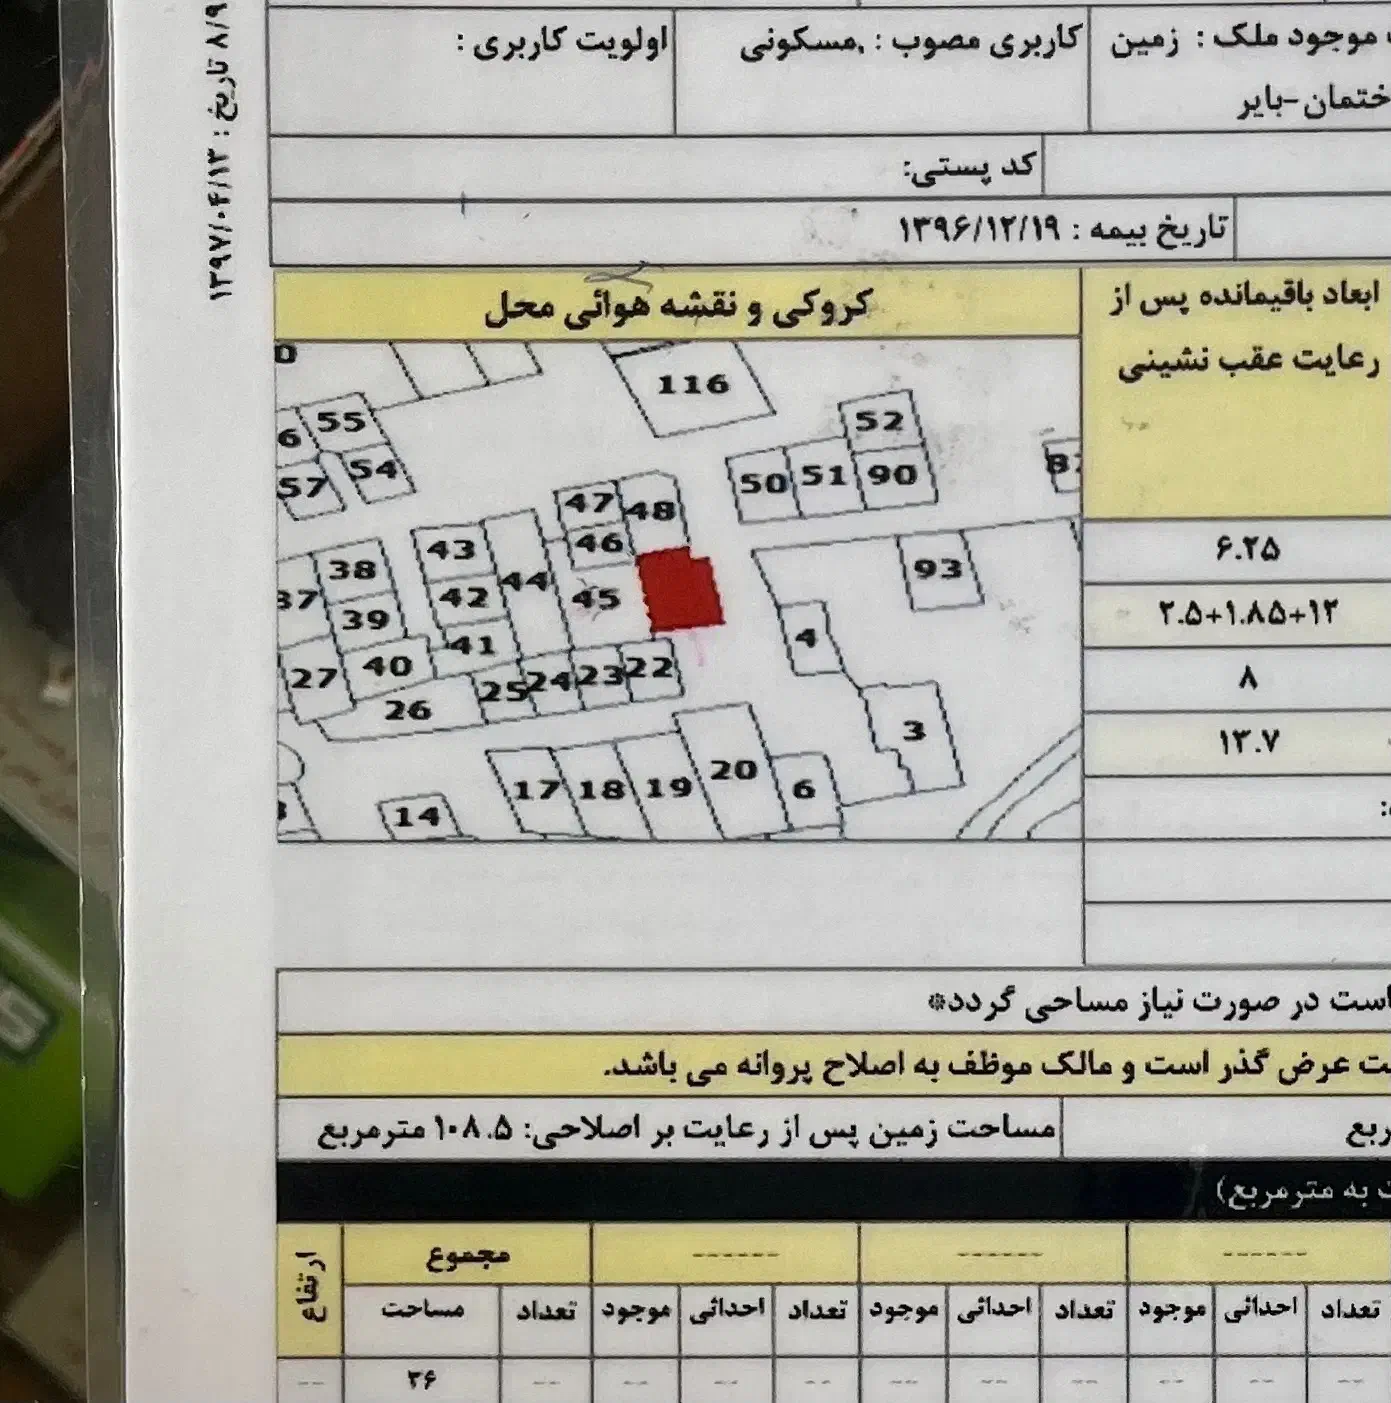 موجود ملک : زمین
کاربری مصوب : ,مسکونی
اولویت کاربری :
ختمان-بایر
کد پستی:
تاریخ بیمه : ۱۳۹۶/۱۲/۱۹
۸/۹ تاریخ : ۱۳۹۷/۰۴/۱۳
ابعاد باقیمانده پس از
رعایت عقب نشینی
۶.۲۵
۲.۵+۱.۸۵+۱۲
۸
۱۳.۷
کروکی و نقشه هوائی محل
116
55
6
54
57
52
50
51
90
47
48
46
43
44
42
45
41
38
37
39
40
27
26
25
24
23
22
93
4
3
17
18
19
20
6
14
است در صورت نیاز مساحی گردد*
عرض گذر است و مالک موظف به اصلاح پروانه می باشد.
مساحت زمین پس از رعایت بر اصلاحی: ۱۰۸.۵ مترمربع
به مترمربع)
------ ------ ------ مجموع ارتفاع
تعداد احداثی موجود تعداد احداثی موجود تعداد احداثی موجود تعداد مساحت
-- -- -- -- -- -- -- -- -- -- ۳۶ --